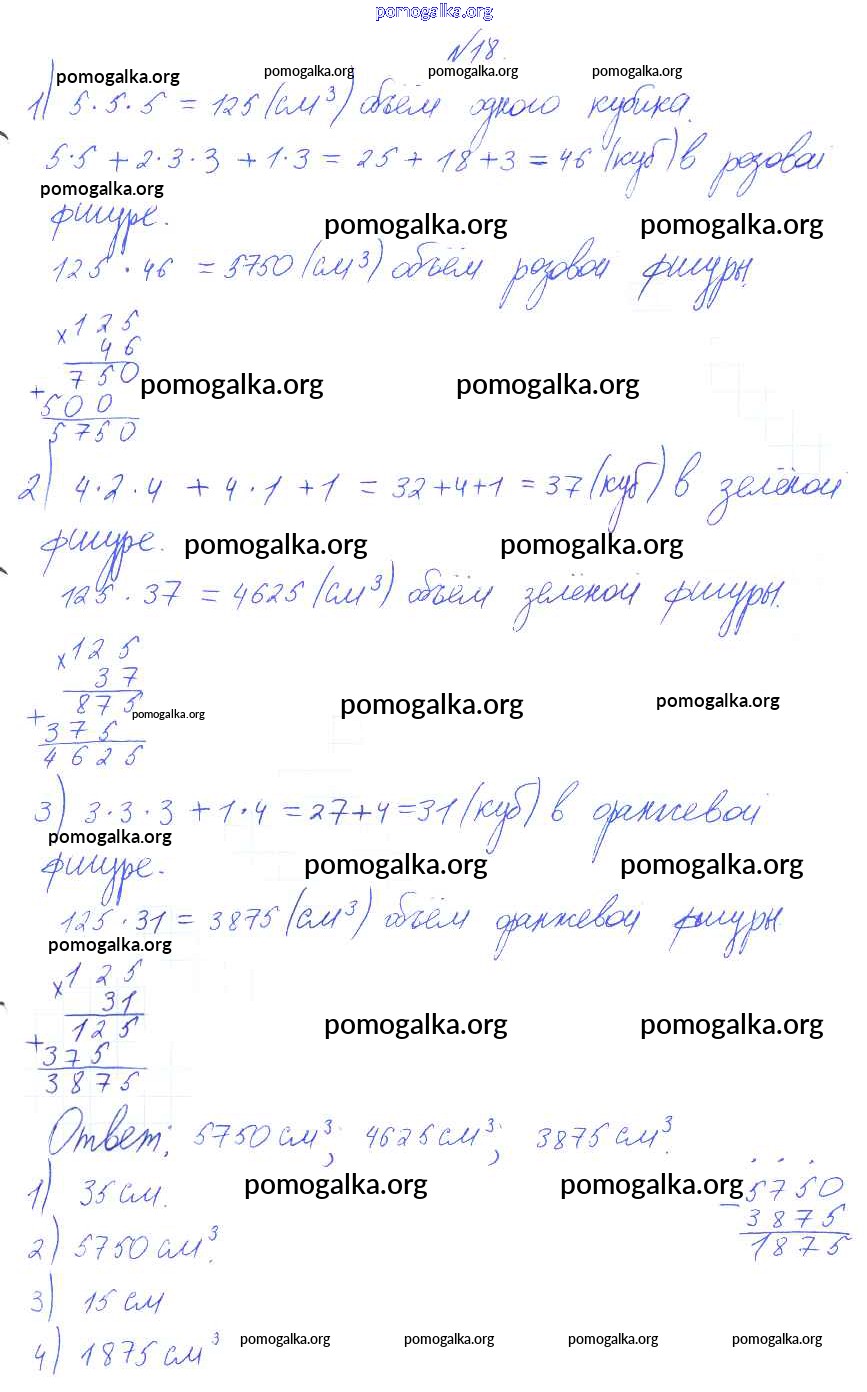 pomogalka.org
№18.
pomogalka.org pomogalka.org pomogalka.org pomogalka.org
1) 5·5·5 = 125 (см³) объём одного кубика.
5·5 + 2·3·3 + 1·3 = 25 + 18 + 3 = 46 (куб) в розовой
pomogalka.org
фигуре.
pomogalka.org pomogalka.org
125 · 46 = 5750 (см³) объём розовой фигуры.
× 125
46
750
pomogalka.org pomogalka.org
+ 500
5750
2) 4·2·4 + 4·1 + 1 = 32 + 4 + 1 = 37 (куб) в зелёной
фигуре.
pomogalka.org pomogalka.org
125 · 37 = 4625 (см³) объём зелёной фигуры.
× 125
37
875
pomogalka.org pomogalka.org pomogalka.org
+ 375
4625
3) 3·3·3 + 1·4 = 27 + 4 = 31 (куб) в оранжевой
pomogalka.org
фигуре.
pomogalka.org pomogalka.org
125 · 31 = 3875 (см³) объём оранжевой фигуры
pomogalka.org
× 125
31
125
pomogalka.org pomogalka.org
+ 375
3875
Ответ: 5750 см³; 4625 см³; 3875 см³.
1) 35 см.
pomogalka.org pomogalka.org
− 5750
3875
1875
2) 5750 см³.
3) 15 см
4) 1875 см³
pomogalka.org pomogalka.org pomogalka.org pomogalka.org